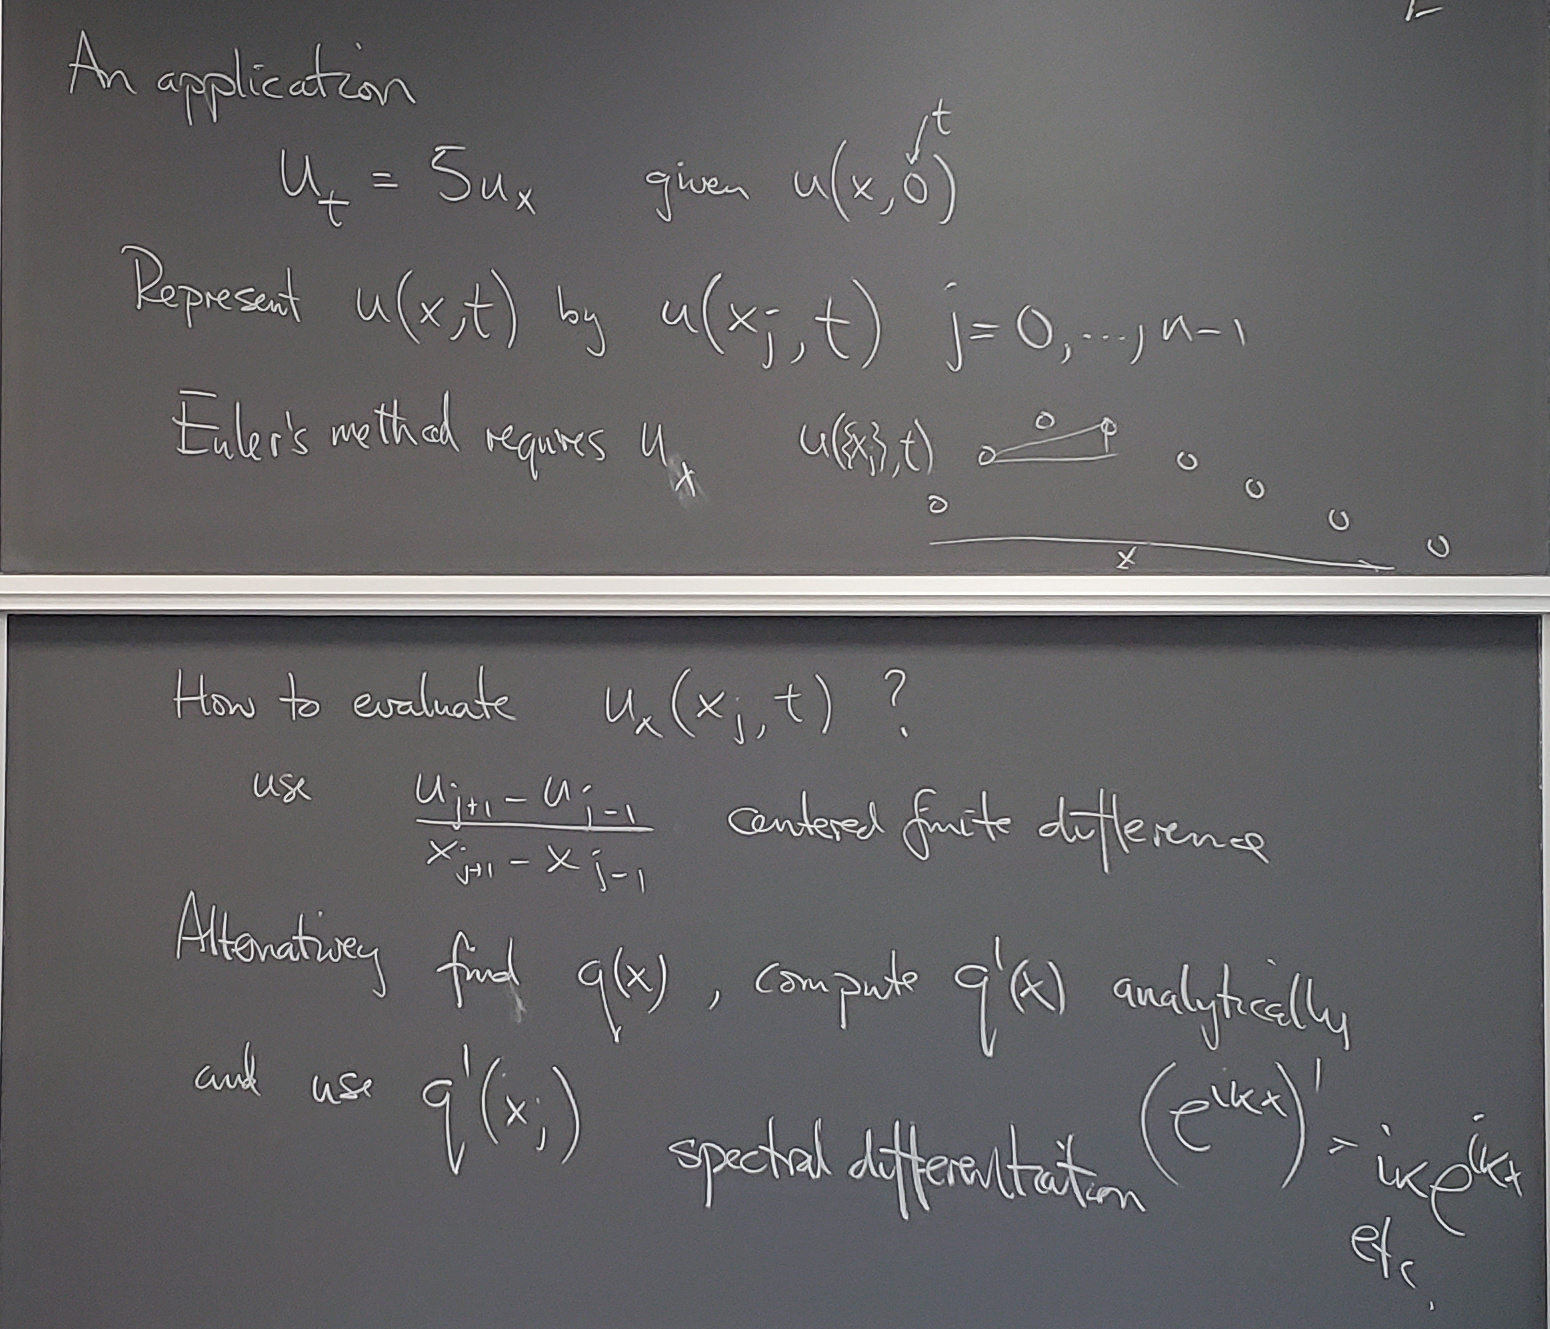 An application
t
u_t = 5u_x given u(x,0)
Represent u(x,t) by u(x_j,t) j=0,...,n-1
Euler's method requires u_x u({x_j},t)
x
How to evaluate u_x(x_j,t) ?
use (u_{j+1} - u_{j-1})/(x_{j+1} - x_{j-1}) centered finite difference
Alternativey find q(x), compute q'(x) analytically
and use q'(x_j) spectral differentiation (e^{ikx})' = ik e^{ikx}
etc.